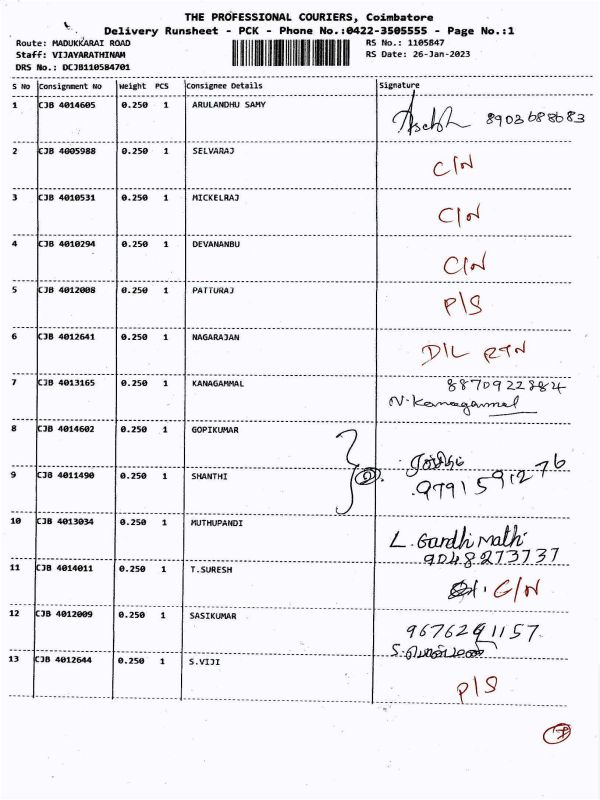 THE PROFESSIONAL COURIERS, Coimbatore
Delivery Runsheet - PCK - Phone No.:0422-3505555 - Page No.:1
Route: MADUKKARAI ROAD
Staff: VIJAYARATHINAM
DRS No.: DCJB110584701
RS No.: 1105847
RS Date: 26-Jan-2023
S No Consignment No Weight PCS Consignee Details Signature
1 CJB 4014605 0.250 1 ARULANDHU SAMY 8903688683
2 CJB 4005988 0.250 1 SELVARAJ C/N
3 CJB 4010531 0.250 1 MICKELRAJ C/N
4 CJB 4010294 0.250 1 DEVANANBU C/N
5 CJB 4012008 0.250 1 PATTURAJ P/S
6 CJB 4012641 0.250 1 NAGARAJAN D/L RTN
7 CJB 4013165 0.250 1 KANAGAMMAL 8870922884
N. Kanagammal
8 CJB 4014602 0.250 1 GOPIKUMAR
9 CJB 4011490 0.250 1 SHANTHI 9791591276
10 CJB 4013034 0.250 1 MUTHUPANDI L. Gandhi Mathi
9048273737
11 CJB 4014011 0.250 1 T.SURESH C/N
12 CJB 4012009 0.250 1 SASIKUMAR 9676291157
13 CJB 4012644 0.250 1 S.VIJI P/S